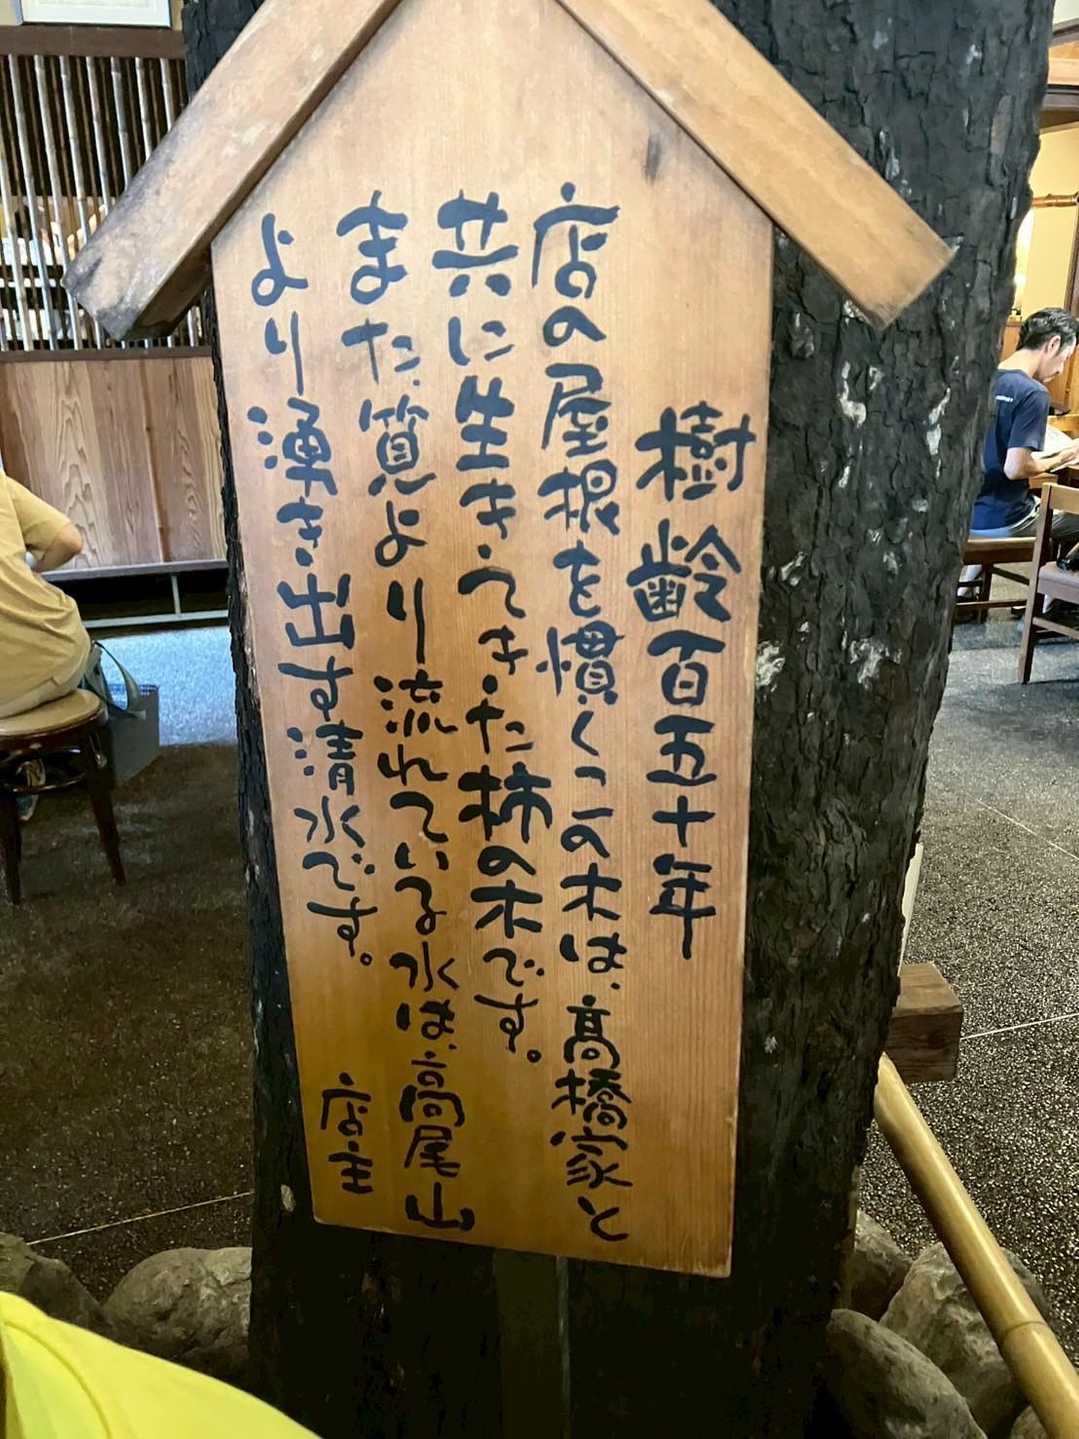 樹齢百五十年
店の屋根を慣くこの木は、高橋家と
共に生きてきた柿の木です。
また、筧より流れている水は、高尾山
より湧き出す清水です。
店主